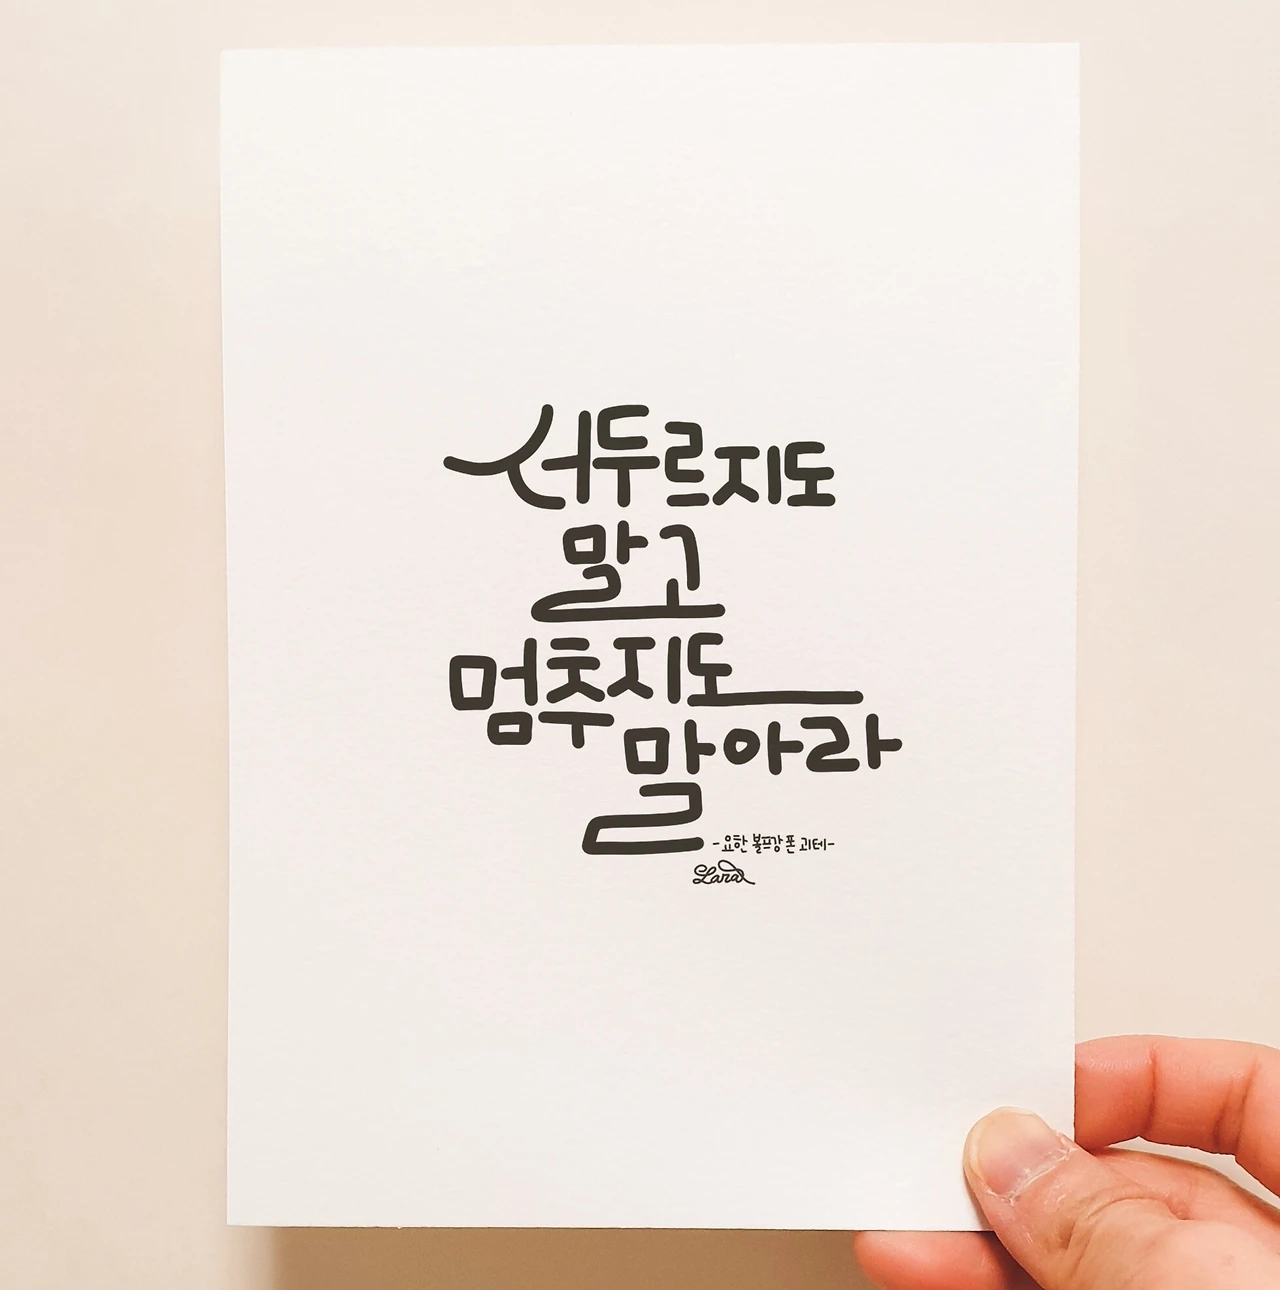 서두르지도
말고
멈추지도
말아라
-요한 볼프강 폰 괴테-
Lara